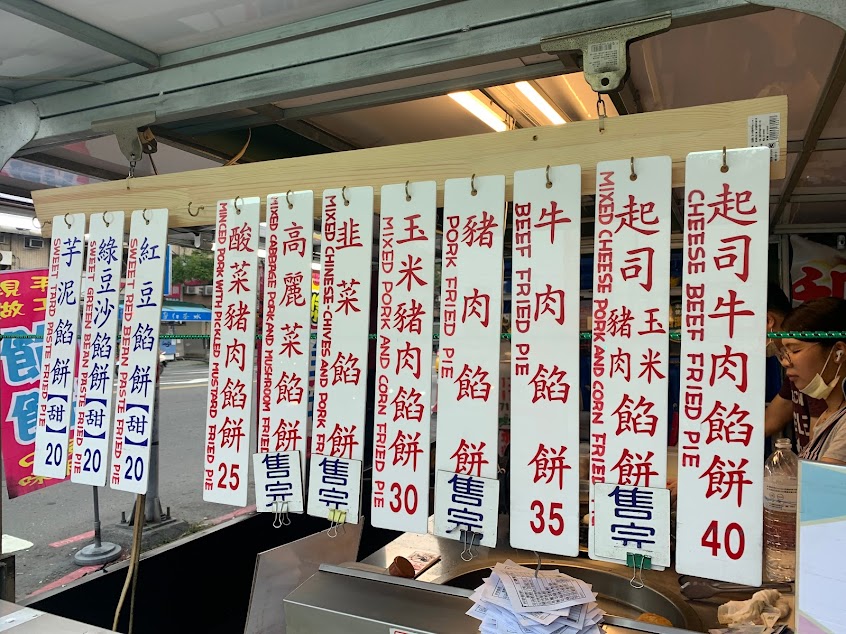 芋泥餡餅(甜)
SWEET TARD PASTE FRIED PIE
20
綠豆沙餡餅(甜)
SWEET GREEN BEAN PASTE FRIED PIE
20
紅豆餡餅(甜)
SWEET RED BEAN PASTE FRIED PIE
20
酸菜豬肉餡餅
MINCED PORK WITH PICKLED MUSTARD FRIED PIE
25
高麗菜餡餅
MIXED CABBAGE PORK AND MUSHROOM FRIED
售完
韭菜餡餅
MIXED CHINESE-CHIVES AND PORK FR
售完
玉米豬肉餡餅
MIXED PORK AND CORN FRIED PIE
30
豬肉餡餅
PORK FRIED PIE
售完
牛肉餡餅
BEEF FRIED PIE
35
起司豬肉玉米餡餅
MIXED CHEESE PORK AND CORN FRIED
售完
起司牛肉餡餅
CHEESE BEEF FRIED PIE
40